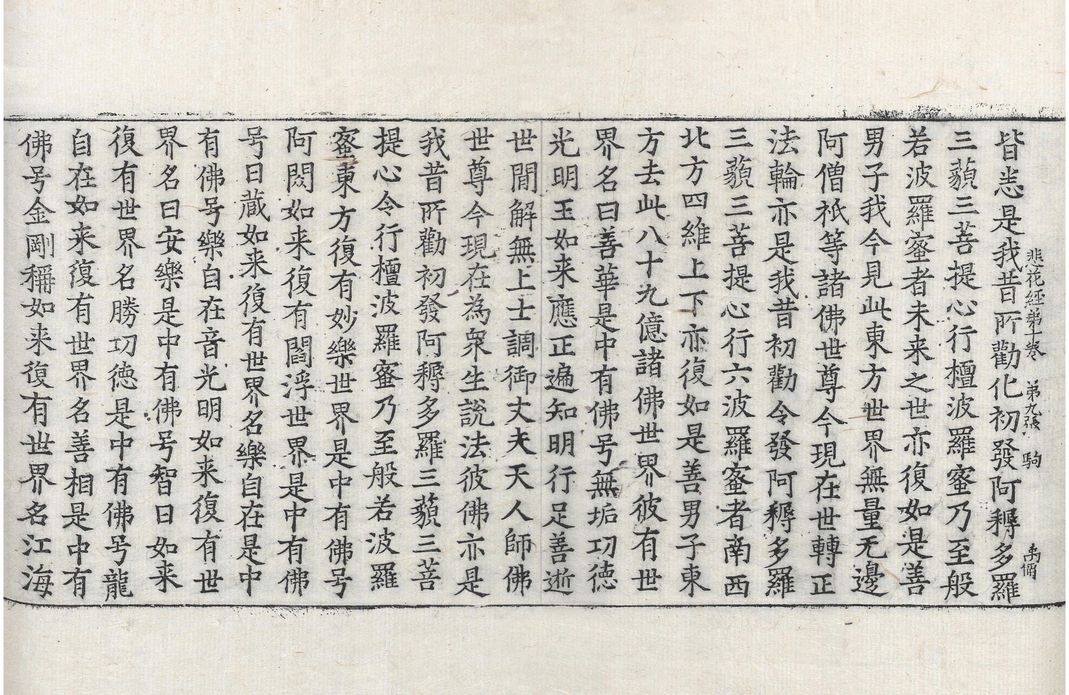 悲花経第十卷 第九張 駒 禹
皆悉是我昔所勸化初發阿耨多羅
三藐三菩提心行檀波羅蜜乃至般
若波羅蜜者未来之世亦復如是善
男子我今見此東方世界無量无邊
阿僧祇等諸佛世尊今現在世轉正
法輪亦是我昔初勸令發阿耨多羅
三藐三菩提心行六波羅蜜者南西
北方四維上下亦復如是善男子東
方去此八十九億諸佛世界彼有世
界名曰善華是中有佛号無垢功德
光明王如来應正遍知明行足善逝
世間解無上士調御丈夫天人師佛
世尊今現在為衆生說法彼佛亦是
我昔所勸初發阿耨多羅三藐三菩
提心令行檀波羅蜜乃至般若波羅
蜜東方復有妙樂世界是中有佛号
阿閦如来復有閻浮世界是中有佛
号曰藏如来復有世界名樂自在是中
有佛号樂自在音光明如来復有世
界名曰安樂是中有佛号智日如来
復有世界名勝功徳是中有佛号龍
自在如来復有世界名善相是中有
佛号金剛稱如来復有世界名江海